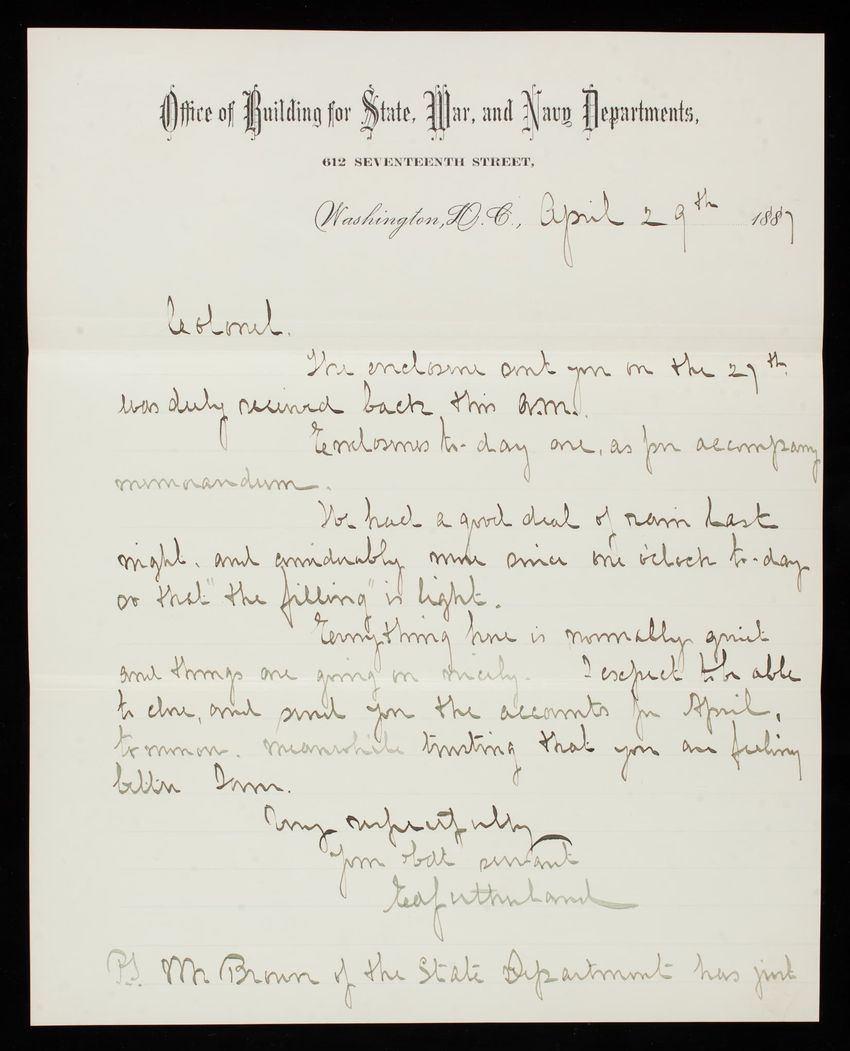 Office of Building for State, War, and Navy Departments,
612 SEVENTEENTH STREET,
Washington, D.C., April 29th 1887
Colonel.
The enclosure sent you on the 27th
was duly received back this a.m.
Enclosures to-day one, as per accompany
memorandum.
We had a good deal of rain last
night, and considerably more since one o'clock to-day
so that "the filling" is light.
Everything here is normally quiet
and things are going on nicely. I expect to be able
to close, and send you the accounts for April,
tomorrow. Meanwhile trusting that you are feeling
better I am.
Very respectfully
Your obdt servant
Sutherland
P.S. Mr Brown of the State Department has just